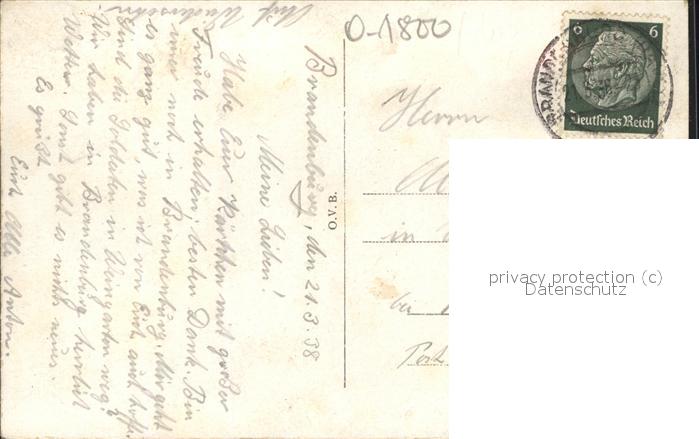 Brandenburg, den 21.3.38
Meine Lieben!
Habe Euer Kärtchen mit großer
Freude erhalten, besten Dank. Bin
immer noch in Brandenburg. Mir geht
es ganz gut, was ich von Euch auch hoffe.
Sind die Soldaten in Weingarten weg?
Wir haben in Brandenburg herrlich
Wetter. Sonst gibt es nichts neues.
Es grüßt
Euch Alle Anton.
Auf Wiedersehn!
O-1800
O.V.B.
6
Deutsches Reich
BRAND
Herrn
in
bei
Post
privacy protection (c)
Datenschutz